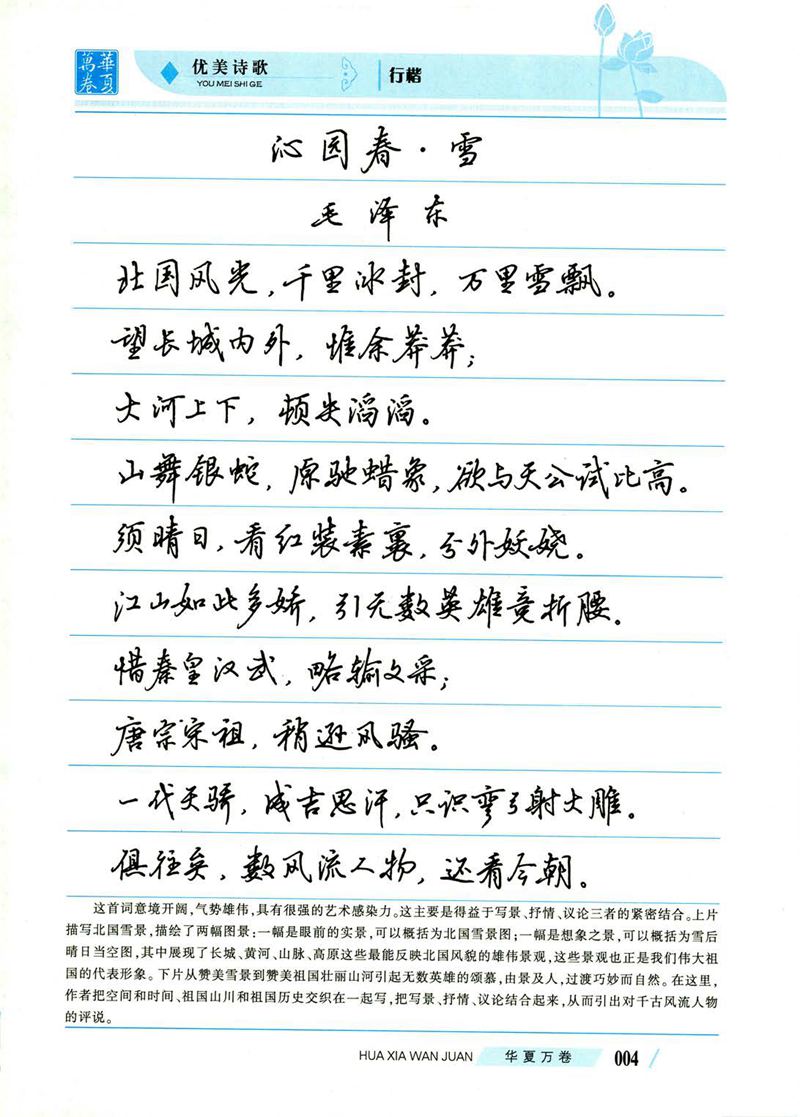 華夏
萬卷
优美诗歌
YOU MEI SHI GE
行楷
沁园春·雪
毛泽东
北国风光，千里冰封，万里雪飘。
望长城内外，惟余莽莽；
大河上下，顿失滔滔。
山舞银蛇，原驰蜡象，欲与天公试比高。
须晴日，看红装素裹，分外妖娆。
江山如此多娇，引无数英雄竞折腰。
惜秦皇汉武，略输文采；
唐宗宋祖，稍逊风骚。
一代天骄，成吉思汗，只识弯弓射大雕。
俱往矣，数风流人物，还看今朝。
这首词意境开阔，气势雄伟，具有很强的艺术感染力。这主要是得益于写景、抒情、议论三者的紧密结合。上片
描写北国雪景，描绘了两幅图景：一幅是眼前的实景，可以概括为北国雪景图；一幅是想象之景，可以概括为雪后
晴日当空图，其中展现了长城、黄河、山脉、高原这些最能反映北国风貌的雄伟景观，这些景观也正是我们伟大祖
国的代表形象。下片从赞美雪景到赞美祖国壮丽山河引起无数英雄的颂慕，由景及人，过渡巧妙而自然。在这里，
作者把空间和时间、祖国山川和祖国历史交织在一起写，把写景、抒情、议论结合起来，从而引出对千古风流人物
的评说。
HUA XIA WAN JUAN
华夏万卷
004